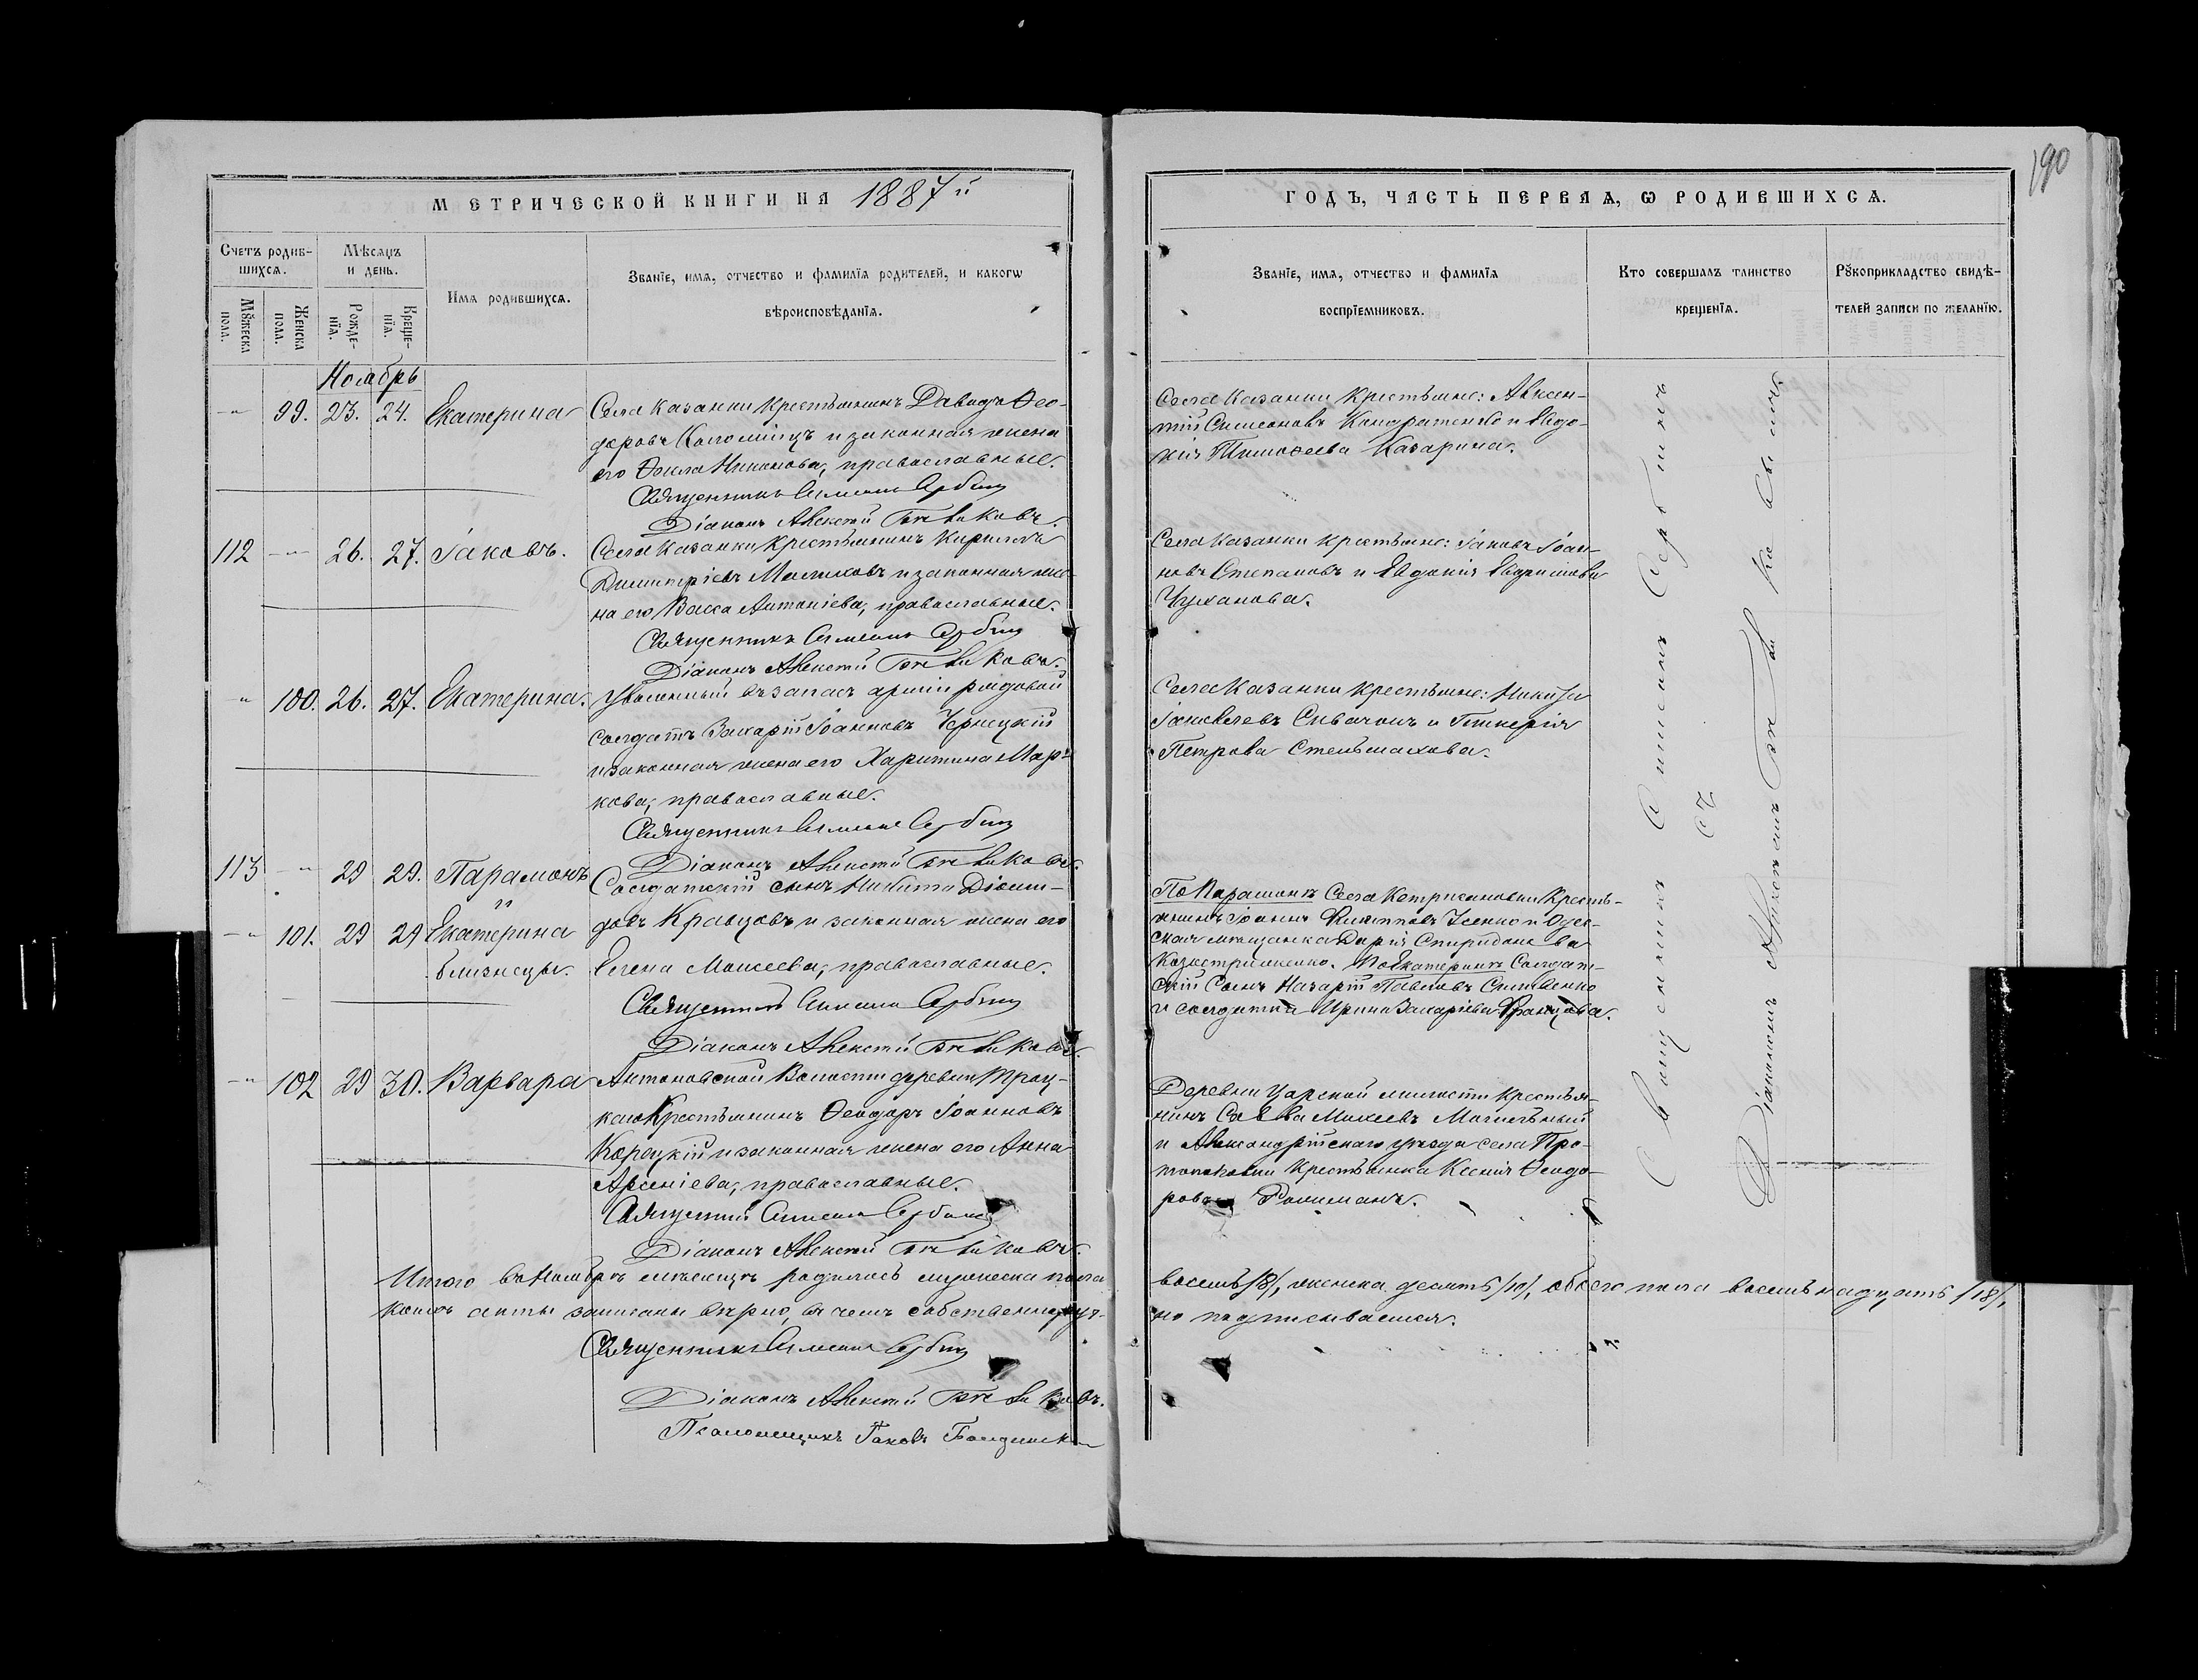 190
МЕТРИЧЕСКОЙ КНИГИ НА 1887й
ГОДЪ, ЧАСТЬ ПЕРВАѦ, Ѡ РОДИВШИХСѦ.
Счетъ родив-
шихсѧ.
Мѣсѧцъ
и день.
Мꙋжеска
пола.
Женска
пола.
Рожде-
нїѧ.
Креще-
нїѧ.
Имѧ родившихсѧ.
Званїе, имѧ, отчество и фамилїѧ родителей, и какогѡ
вѣроисповѣданїѧ.
Званїе, имѧ, отчество и фамилїѧ
воспрїемниковъ.
Кто совершалъ таинство
крещенїѧ.
Рꙋкоприкладство свидѣ-
телей записи по желанїю.
Ноябрь
99. 23. 24. Екатерина
Села Казанки крестьянинъ Давидъ Ѳео-
доровъ Коломіецъ и законная жена
его Ѳекла Никонова, православные.
Священникъ Симеонъ Сербинъ
Діаконъ Алексій
Села Казанки крестьяне: Авксен-
тій Симеоновъ Кондратенко и Евдо-
кія Тимоѳеева Казарина.
112 26. 27. Іаковъ.
Села Казанки крестьянинъ Кириллъ
Димитріевъ Маликовъ и законная же-
на его Васса Антоніева, православные.
Священникъ Симеонъ Сербинъ
Діаконъ Алексій
Села Казанки крестьяне: Іаковъ Іоан-
новъ Степановъ и Евдокія
Чуханова.
100. 26. 27. Екатерина.
Уволенный въ запасъ арміи рядовой
солдатъ Захарій Іоанновъ Чернецкій
и законная жена его Харитина Мар-
кова, православные.
Священникъ Симеонъ Сербинъ
Діаконъ Алексій
Села Казанки крестьяне: Никита
Іаковлевъ и Гликерія
Петрова Стельмахова.
113 29 29. Парамонъ
и
101. 29 29 Екатерина
близнецы.
Солдатскій сынъ Никита Діоми-
довъ Кравцовъ и законная жена его
Елена Моисеева, православные.
Священникъ Симеонъ Сербинъ
Діаконъ Алексій
По Парамонѣ Села крестья-
нинъ Іоаннъ Филипповъ Усенко и Одес-
ская мѣщанка Дарія Спиридонова
По Екатеринѣ Солдат-
скій Сынъ Назарій Павловъ
и солдатка Ирина Захаріева
102 29 30. Варвара
Антоновской Волости деревни Троц-
каго Крестьянинъ Ѳеодоръ Іоанновъ
Корецкій и законная жена его Анна
Арсеніева, православные.
Священникъ Симеонъ Сербинъ
Діаконъ Алексій
Деревни Царской милости крестья-
нинъ Савва Мокеевъ Могильный
и Александрійскаго уѣзда села Про-
топоповки крестьянка Ксенія Ѳеодо-
рова
Священникъ Симеонъ Сербинъ
съ
Діакономъ Алексіемъ
Итого въ Ноябрѣ мѣсяцѣ родилось мужеска пола восемь /8/, женска десять /10/, обоего пола восемьнадцать /18/,
коихъ акты записаны вѣрно, въ чемъ собственноруч-
но подписываемся.
Священникъ Симеонъ Сербинъ
Діаконъ Алексій
Псаломщикъ Іаковъ